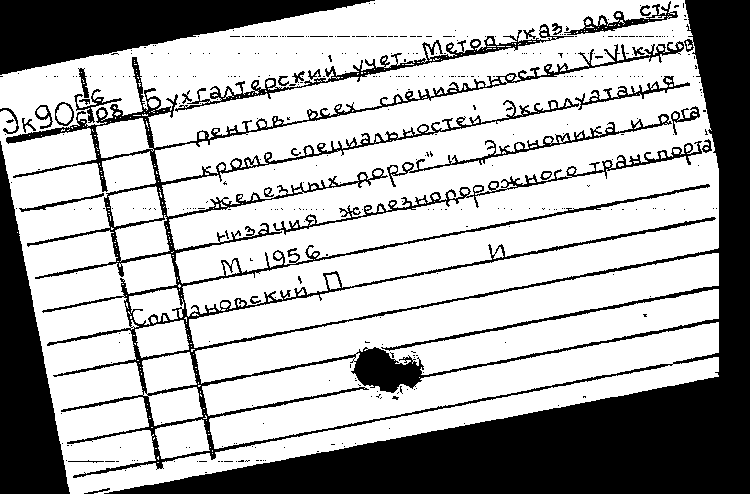 Эк90 Б6/08 Бухгалтерский учет. Метод указ. для сту-
дентов. всех специальностей V-VI курсов
кроме специальностей „Эксплуатация
железных дорог" и „Экономика и орга-
низация железнодорожного транспорта"
М., 1956. И
Солтановский, П